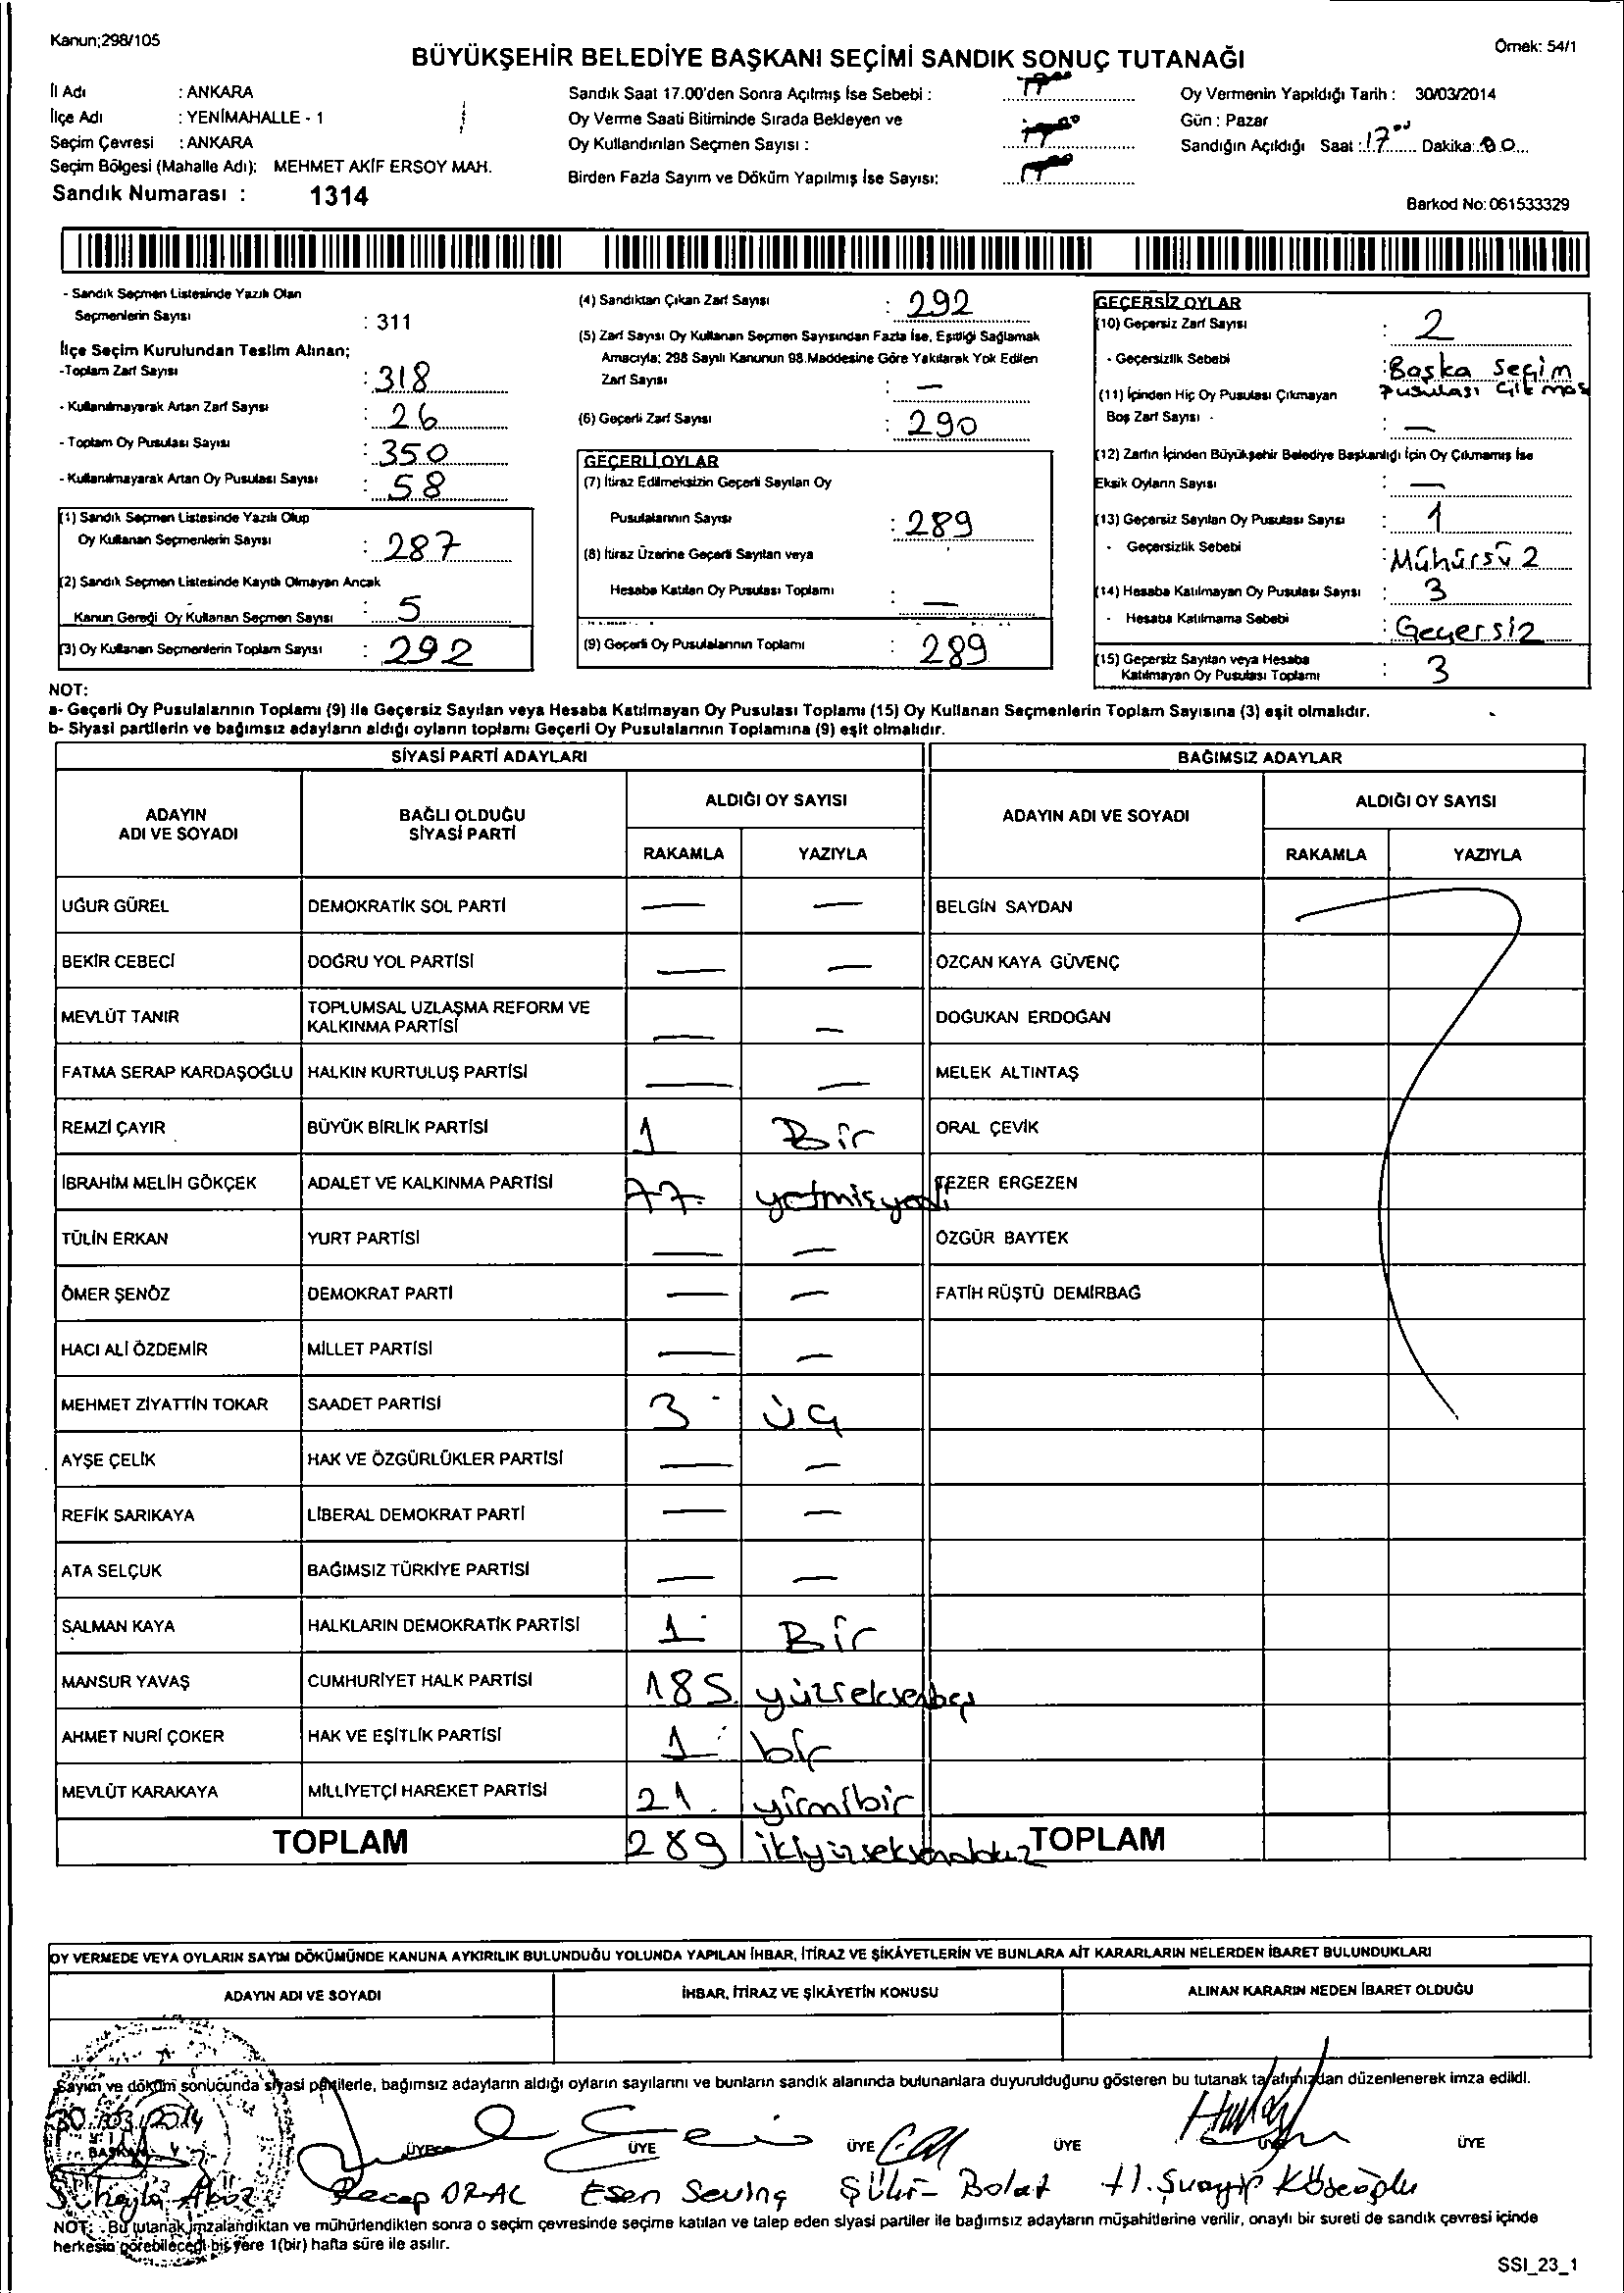 Kanun;298/105
Örnek: 54/1
BÜYÜKŞEHİR BELEDİYE BAŞKANI SEÇİMİ SANDIK SONUÇ TUTANAĞI
İl Adı : ANKARA
İlçe Adı : YENİMAHALLE - 1
Seçim Çevresi : ANKARA
Seçim Bölgesi (Mahalle Adı): MEHMET AKİF ERSOY MAH.
Sandık Numarası : 1314
Sandık Saat 17.00'den Sonra Açılmış İse Sebebi :
Oy Verme Saati Bitiminde Sırada Bekleyen ve
Oy Kullandırılan Seçmen Sayısı :
Birden Fazla Sayım ve Döküm Yapılmış İse Sayısı:
Oy Vermenin Yapıldığı Tarih : 30/03/2014
Gün : Pazar
Sandığın Açıldığı Saat : 17 00 Dakika: 00
Barkod No: 061533329
- Sandık Seçmen Listesinde Yazılı Olan
Seçmenlerin Sayısı : 311
İlçe Seçim Kurulundan Teslim Alınan;
-Toplam Zarf Sayısı : 318
- Kullanılmayarak Artan Zarf Sayısı : 26
- Toplam Oy Pusulası Sayısı : 350
- Kullanılmayarak Artan Oy Pusulası Sayısı : 58
(1) Sandık Seçmen Listesinde Yazılı Olup
Oy Kullanan Seçmenlerin Sayısı : 287
(2) Sandık Seçmen Listesinde Kayıtlı Olmayan Ancak
Kanun Gereği Oy Kullanan Seçmen Sayısı : 5
(3) Oy Kullanan Seçmenlerin Toplam Sayısı : 292
(4) Sandıktan Çıkan Zarf Sayısı : 292
(5) Zarf Sayısı Oy Kullanan Seçmen Sayısından Fazla İse, Eşitliği Sağlamak
Amacıyla; 298 Sayılı Kanunun 98.Maddesine Göre Yakılarak Yok Edilen
Zarf Sayısı : —
(6) Geçerli Zarf Sayısı : 290
GEÇERLİ OYLAR
(7) İtiraz Edilmeksizin Geçerli Sayılan Oy
Pusulalarının Sayısı : 289
(8) İtiraz Üzerine Geçerli Sayılan veya
Hesaba Katılan Oy Pusulası Toplamı : —
(9) Geçerli Oy Pusulalarının Toplamı : 289
GEÇERSİZ OYLAR
(10) Geçersiz Zarf Sayısı : 2
- Geçersizlik Sebebi : Başka Seçim
Pusulası
(11) İçinden Hiç Oy Pusulası Çıkmayan
Boş Zarf Sayısı - : —
(12) Zarfın İçinden Büyükşehir Belediye Başkanlığı İçin Oy Çıkmamış İse
Eksik Oyların Sayısı : —
(13) Geçersiz Sayılan Oy Pusulası Sayısı : 1
- Geçersizlik Sebebi : Mühürsüz
(14) Hesaba Katılmayan Oy Pusulası Sayısı : 3
- Hesaba Katılmama Sebebi : Geçersiz
(15) Geçersiz Sayılan veya Hesaba
Katılmayan Oy Pusulası Toplamı : 3
NOT:
a- Geçerli Oy Pusulalarının Toplamı (9) ile Geçersiz Sayılan veya Hesaba Katılmayan Oy Pusulası Toplamı (15) Oy Kullanan Seçmenlerin Toplam Sayısına (3) eşit olmalıdır.
b- Siyasi partilerin ve bağımsız adayların aldığı oyların toplamı Geçerli Oy Pusulalarının Toplamına (9) eşit olmalıdır.
SİYASİ PARTİ ADAYLARI
BAĞIMSIZ ADAYLAR
ADAYIN
ADI VE SOYADI
BAĞLI OLDUĞU
SİYASİ PARTİ
ALDIĞI OY SAYISI
RAKAMLA YAZIYLA
ADAYIN ADI VE SOYADI
ALDIĞI OY SAYISI
RAKAMLA YAZIYLA
UĞUR GÜREL DEMOKRATİK SOL PARTİ — — BELGİN SAYDAN
BEKİR CEBECİ DOĞRU YOL PARTİSİ — — ÖZCAN KAYA GÜVENÇ
MEVLÜT TANIR TOPLUMSAL UZLAŞMA REFORM VE
KALKINMA PARTİSİ — — DOĞUKAN ERDOĞAN
FATMA SERAP KARDAŞOĞLU HALKIN KURTULUŞ PARTİSİ — — MELEK ALTINTAŞ
REMZİ ÇAYIR BÜYÜK BİRLİK PARTİSİ 1 Bir ORAL ÇEVİK
İBRAHİM MELİH GÖKÇEK ADALET VE KALKINMA PARTİSİ 77 yetmişyedi TEZER ERGEZEN
TÜLİN ERKAN YURT PARTİSİ — — ÖZGÜR BAYTEK
ÖMER ŞENÖZ DEMOKRAT PARTİ — — FATİH RÜŞTÜ DEMİRBAĞ
HACI ALİ ÖZDEMİR MİLLET PARTİSİ — —
MEHMET ZİYATTİN TOKAR SAADET PARTİSİ 3 üç
AYŞE ÇELİK HAK VE ÖZGÜRLÜKLER PARTİSİ — —
REFİK SARIKAYA LİBERAL DEMOKRAT PARTİ — —
ATA SELÇUK BAĞIMSIZ TÜRKİYE PARTİSİ — —
SALMAN KAYA HALKLARIN DEMOKRATİK PARTİSİ 1 Bir
MANSUR YAVAŞ CUMHURİYET HALK PARTİSİ 185 yüzseksenbeş
AHMET NURİ ÇOKER HAK VE EŞİTLİK PARTİSİ 1 bir
MEVLÜT KARAKAYA MİLLİYETÇİ HAREKET PARTİSİ 21 yirmibir
TOPLAM 289 ikiyüzseksendokuz TOPLAM
OY VERMEDE VEYA OYLARIN SAYIM DÖKÜMÜNDE KANUNA AYKIRILIK BULUNDUĞU YOLUNDA YAPILAN İHBAR, İTİRAZ VE ŞİKÂYETLERİN VE BUNLARA AİT KARARLARIN NELERDEN İBARET BULUNDUKLARI
ADAYIN ADI VE SOYADI İHBAR, İTİRAZ VE ŞİKÂYETİN KONUSU ALINAN KARARIN NEDEN İBARET OLDUĞU
Sayım ve döküm sonucunda siyasi partilerle, bağımsız adayların aldığı oyların sayılarını ve bunların sandık alanında bulunanlara duyurulduğunu gösteren bu tutanak tarafımızdan düzenlenerek imza edildi.
30/03/2014
BAŞKAN ÜYE ÜYE ÜYE ÜYE ÜYE ÜYE
Süheyla Recep ORAL Esen Sevinç Şükrü Bolat H. Şuayip Köseoğlu
NOT: - Bu tutanak imzalandıktan ve mühürlendikten sonra o seçim çevresinde seçime katılan ve talep eden siyasi partiler ile bağımsız adayların müşahitlerine verilir, onaylı bir sureti de sandık çevresi içinde
herkesin görebileceği bir yere 1(bir) hafta süre ile asılır.
SSI_23_1